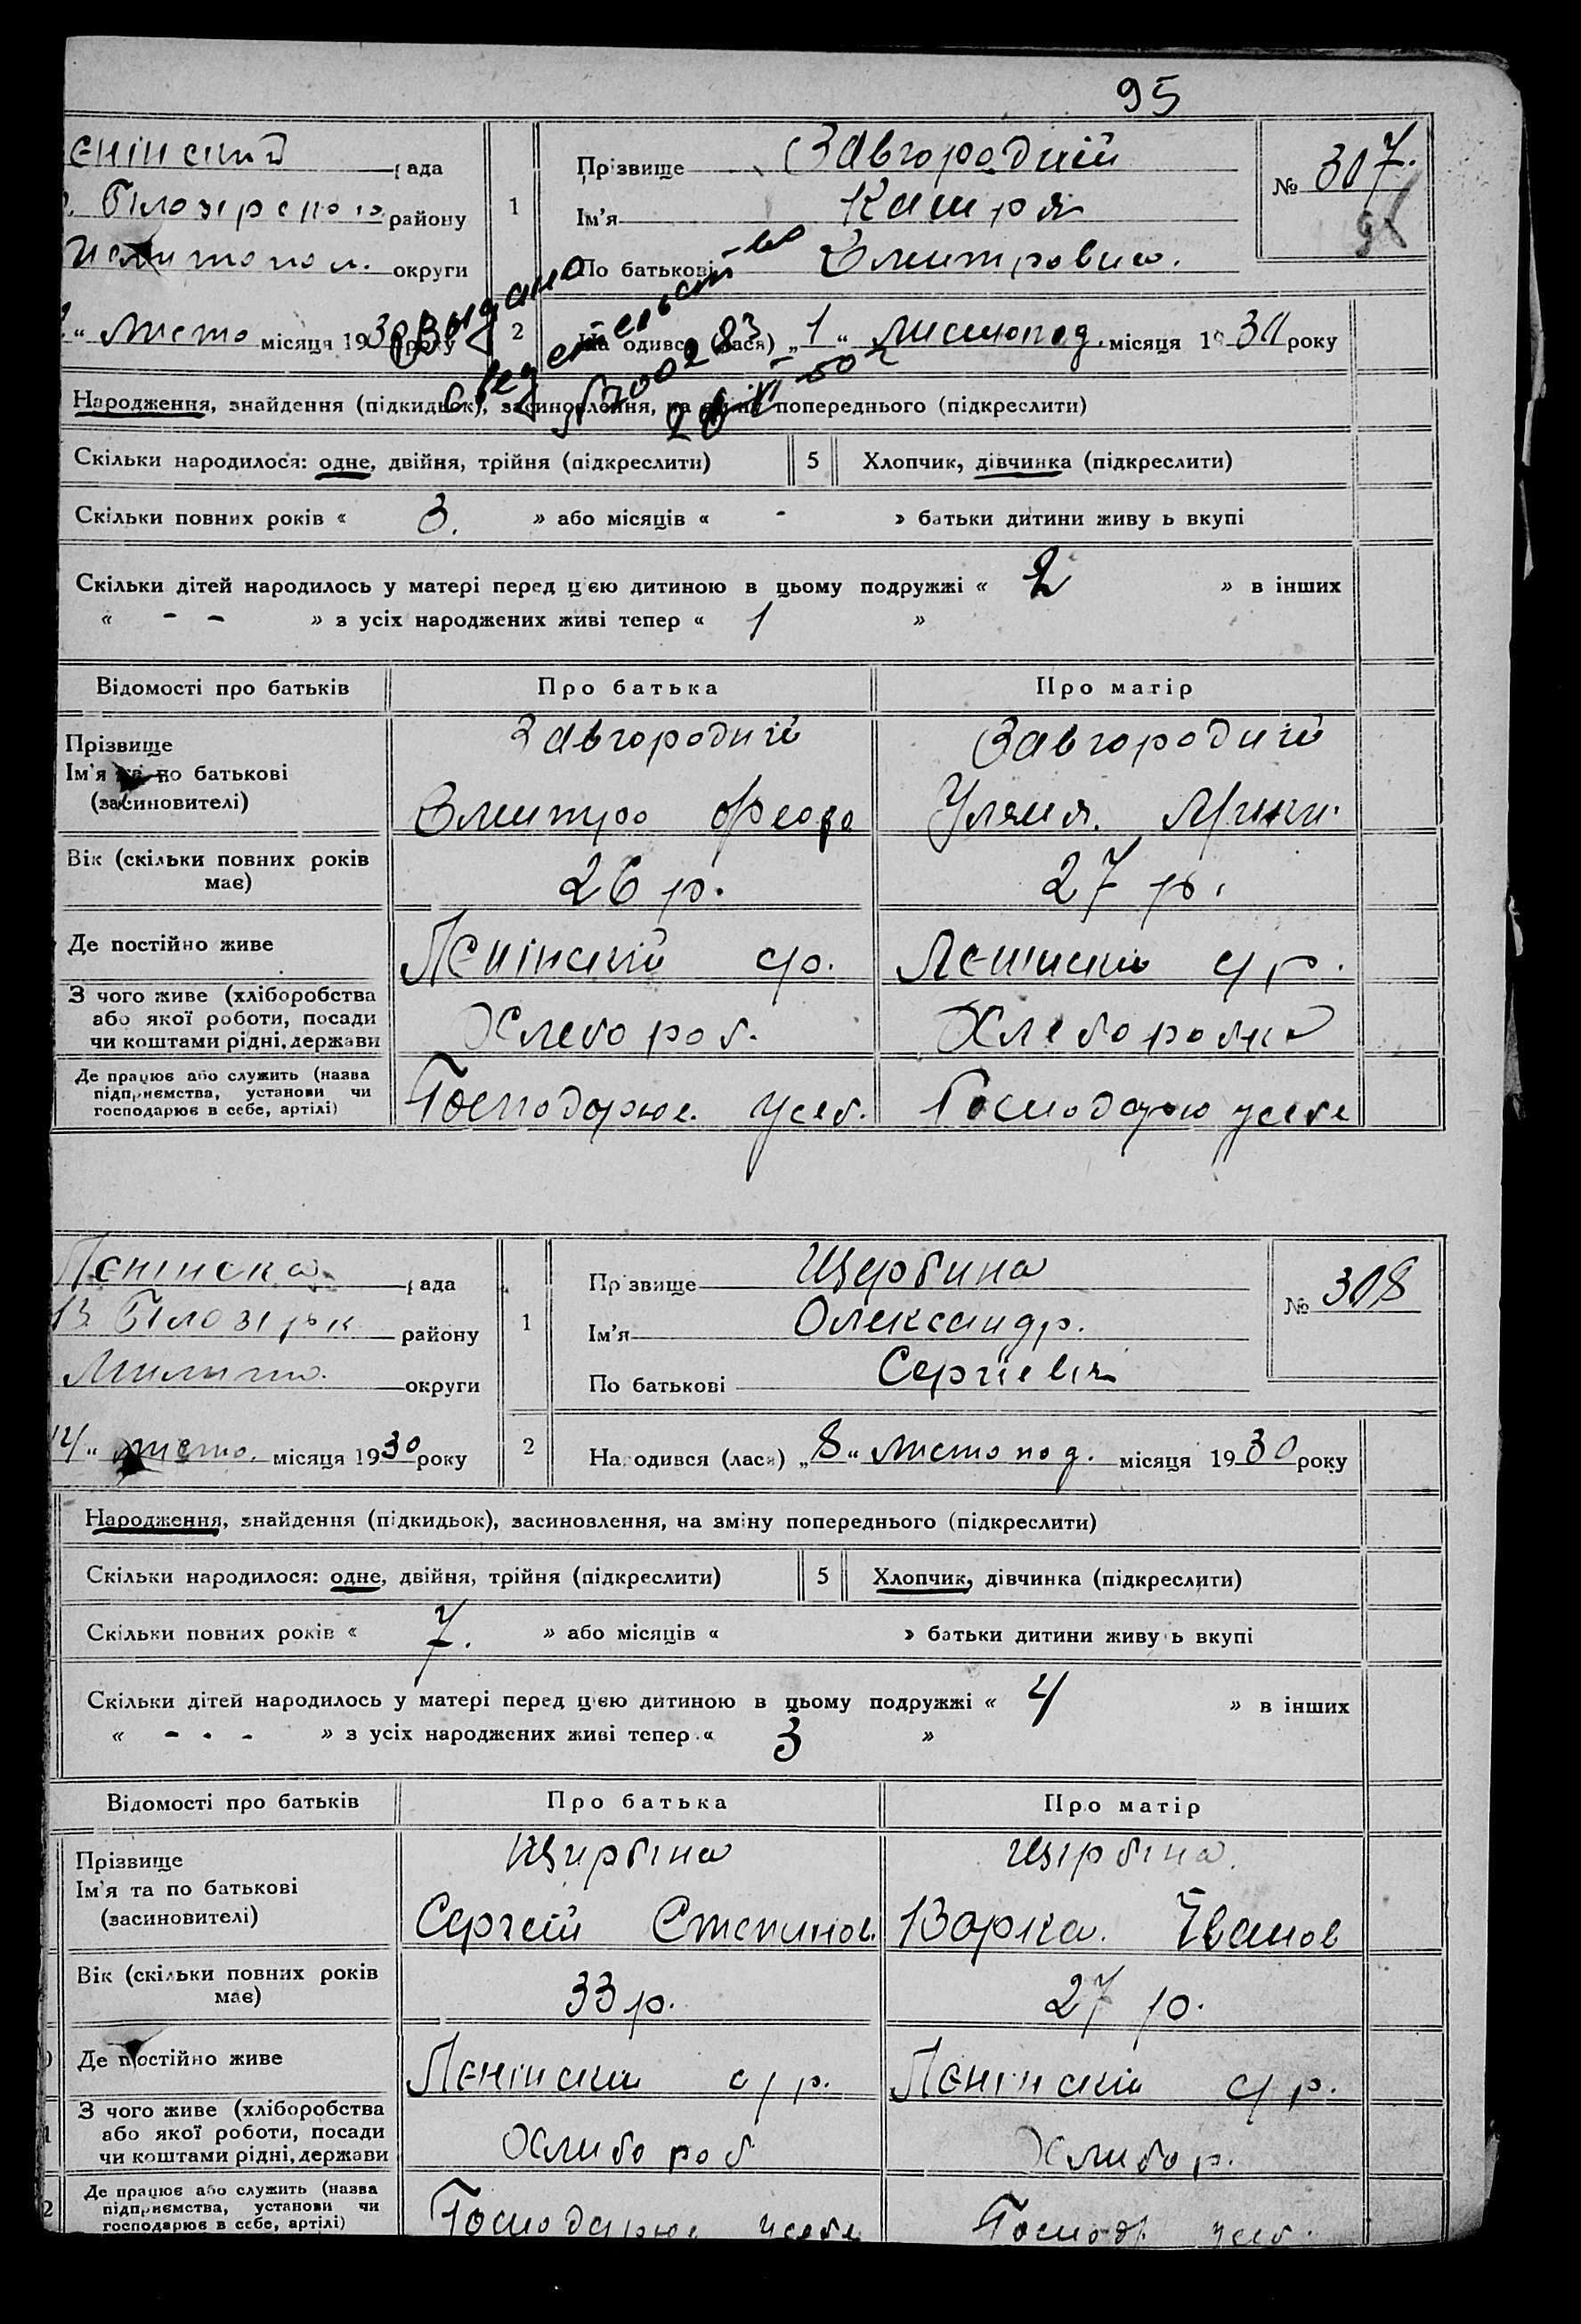 95
єнінский рада
Білозірского району
округи
" листо місяця 1930 року
1
Прізвище Завгородній
Ім'я
По батькові Дмитровна.
№ 307.
2
Видано
N 300283
Народився (лася) „1" листопад. місяця 1930 року
Народження, знайдення (підкидьок), засиновлення, на зміну попереднього (підкреслити)
Скільки народилося: одне, двійня, трійня (підкреслити) 5 Хлопчик, дівчинка (підкреслити)
Скільки повних років « 3. » або місяців « - » батьки дитини живуть вкупі
Скільки дітей народилось у матері перед цією дитиною в цьому подружжі « 2 » в інших
« - - » з усіх народжених живі тепер « 1 »
Відомості про батьків Про батька Про матір
Прізвище
Ім'я та по батькові
(засиновителі)
Завгородній Завгородній
Дмитро Федо Уляна.
Вік (скільки повних років
має)
26 р. 27 р.
Де постійно живе Ленінский ср. Ленинский ср.
З чого живе (хліборобства
або якої роботи, посади
чи коштами рідні, держави
Хлебороб. Хлеборобка
Де працює або служить (назва
підприємства, установи чи
господарює в себе, артілі)
Господарює. усеб. Господарю усебе
Ленінска рада
Білозірк району
Милито. округи
14" листо. місяця 1930 року
1
Прізвище Щербина
Ім'я Олександр.
По батькові Сергіевич
№ 308
2
Народився (лася) „8" листопад. місяця 1930 року
Народження, знайдення (підкидьок), засиновлення, на зміну попереднього (підкреслити)
Скільки народилося: одне, двійня, трійня (підкреслити) 5 Хлопчик, дівчинка (підкреслити)
Скільки повних років « 7. » або місяців « » батьки дитини живуть вкупі
Скільки дітей народилось у матері перед цією дитиною в цьому подружжі « 4 » в інших
« - - - » з усіх народжених живі тепер « 3 »
Відомості про батьків Про батька Про матір
Прізвище
Ім'я та по батькові
(засиновителі)
Щирбіна Щірбіна.
Сергей Степанов. Варка. Іванов
Вік (скільки повних років
має)
33 р. 27 р.
Де постійно живе Ленінский ср. Ленінский ср.
З чого живе (хліборобства
або якої роботи, посади
чи коштами рідні, держави
Хлибороб Хлибор.
Де працює або служить (назва
підприємства, установи чи
господарює в себе, артілі)
Господарює усебе Господ. усеб.